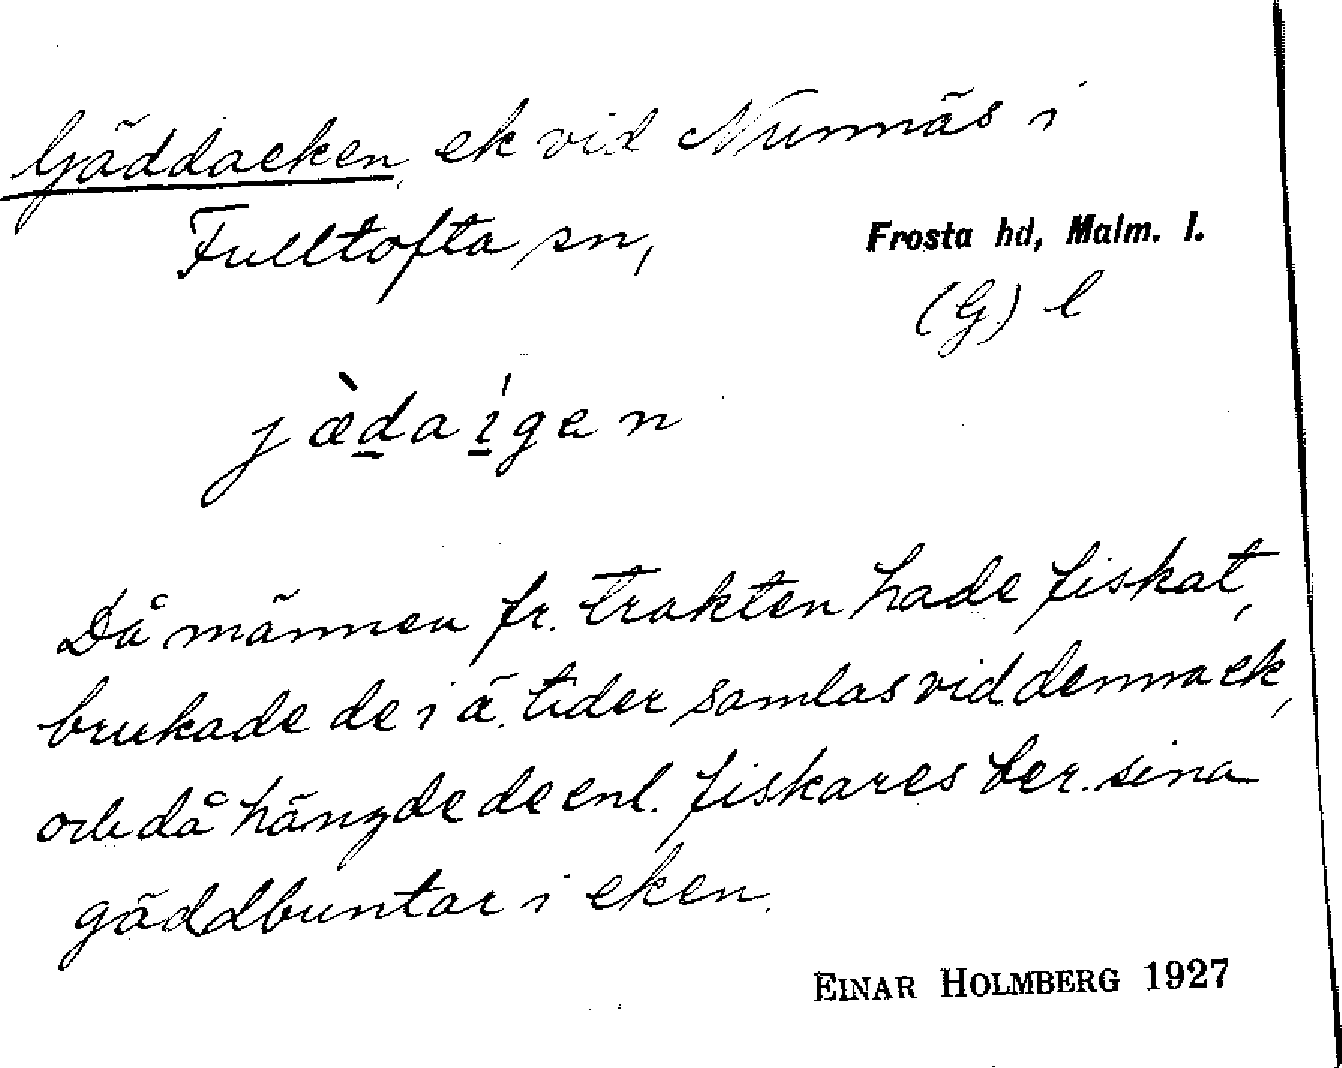 Gäddaeken, ek vid Nunnäs i
Fulltofta sn, Frosta hd, Malm. l.
(G) l
jæ̀daígen
Då männen fr. trakten hade fiskat,
brukade de i ä. tider samlas vid denna ek,
och då hängde de enl. fiskares ber. sina
gäddbuntar i eken.
EINAR HOLMBERG 1927